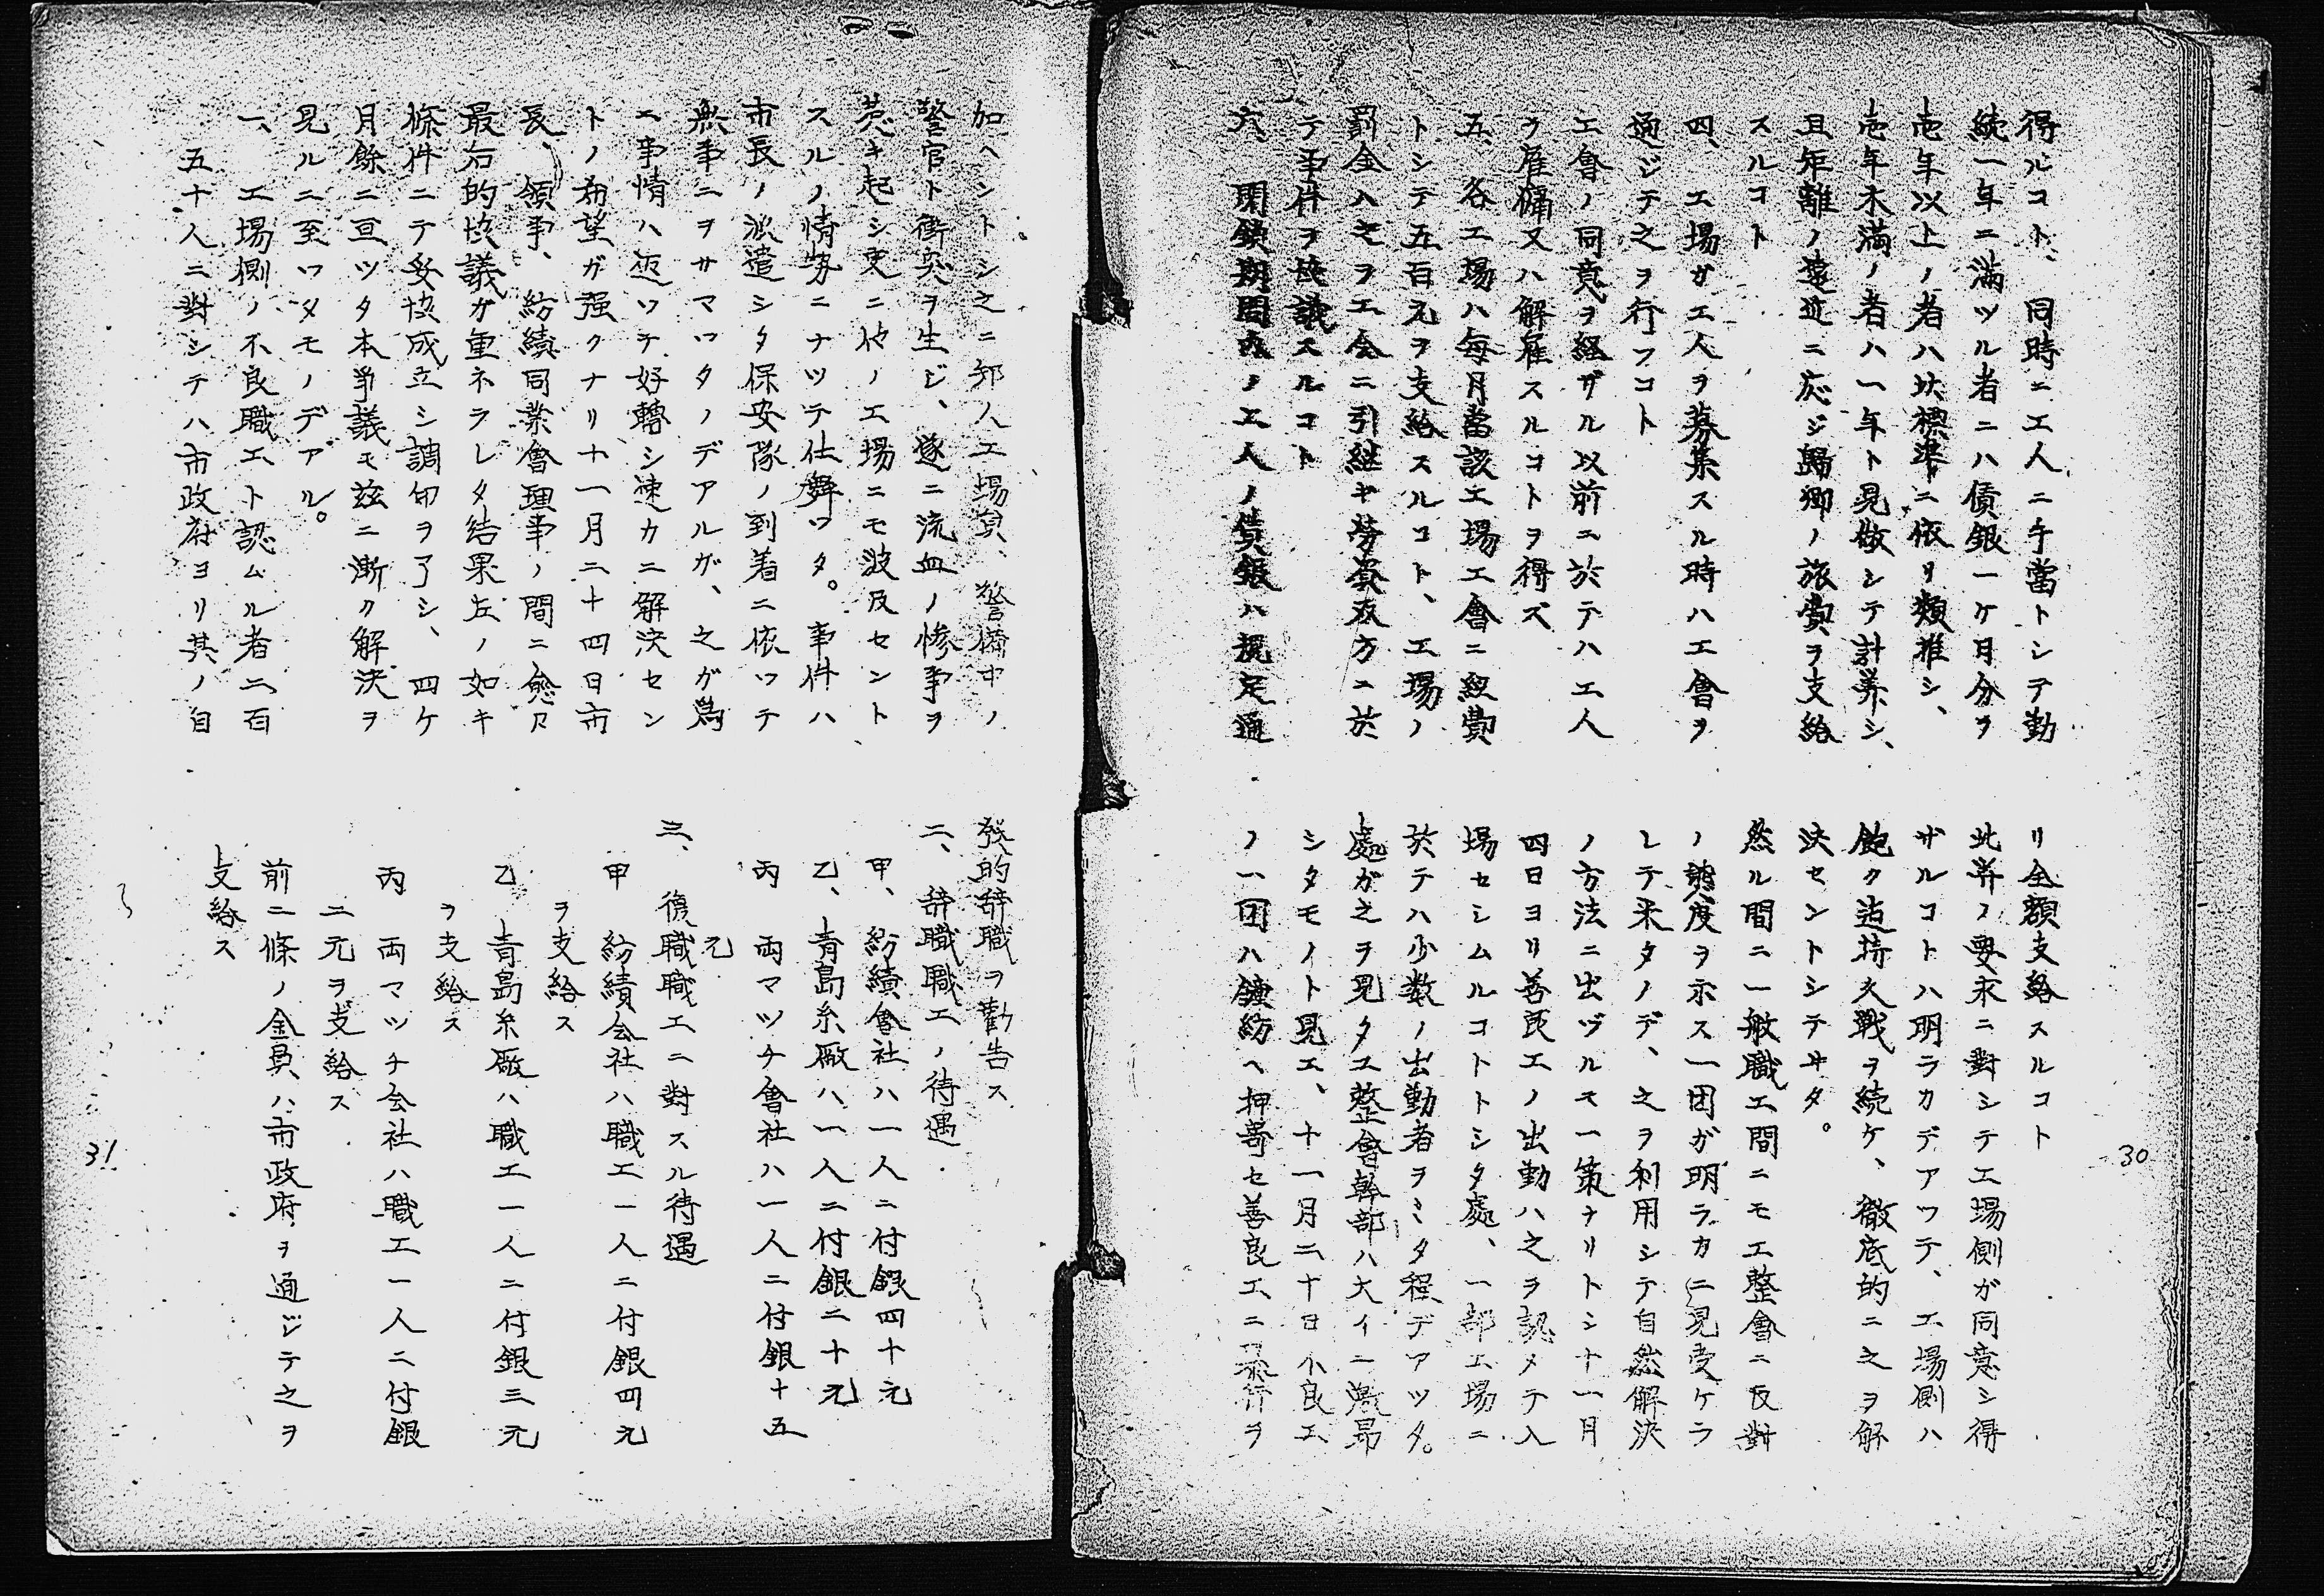 得ルコト、同時ニ工人ニ手當トシテ勤
続一年ニ満ツル者ニハ賃銀一ケ月分ヲ
壱年以上ノ者ハ此標準ニ依リ類推シ、
壱年未満ノ者ハ一年ト見做シテ計算シ、
且距離ノ遠近ニ応ジ歸郷ノ旅費ヲ支給
スルコト
四、工場ガ工人ヲ募集スル時ハ工會ヲ
通ジテ之ヲ行フコト
工會ノ同意ヲ経ザル以前ニ於テハ工人
ヲ雇傭又ハ解雇スルコトヲ得ズ
五、各工場ハ毎月當該工場工會ニ経費
トシテ五百元ヲ支給スルコト、工場ノ
罰金ハ之ヲ工会ニ引継ギ労資双方ニ於
テ事件ヲ協議スルコト
六、閉鎖期間内ノ工人ノ賃銀ハ規定通
リ全額支給スルコト
此等ノ要求ニ對シテ工場側ガ同意シ得
ザルコトハ明ラカデアツテ、工場側ハ
飽ク迄持久戦ヲ続ケ、徹底的ニ之ヲ解
決セントシテヰタ。
然ル間ニ一般職工間ニモ工整會ニ反對
ノ態度ヲ示ス一団ガ明ラカニ見受ケラ
レテ来タノデ、之ヲ利用シテ自然解決
ノ方法ニ出ヅルモ一策ナリトシ十一月
四日ヨリ善良工ノ出勤ハ之ヲ認メテ入
場セシムルコトトシタ處、一部工場ニ
於テハ少数ノ出勤者ヲミタ程デアツタ。
處ガ之ヲ見タ工整會幹部ハ大イニ激昂
シタモノト見エ、十一月二十日不良工
ノ一団ハ鐘紡ヘ押寄セ善良工ニ暴行ヲ
30
加ヘントシ之ニ邦人工場員、警備中ノ
警官ト衝突ヲ生ジ、遂ニ流血ノ惨事ヲ
惹キ起シ更ニ他ノ工場ニモ波及セント
スルノ情勢ニナツテ仕舞ツタ。事件ハ
市長ノ派遣シタ保安隊ノ到着ニ依ツテ
無事ニヲサマツタノデアルガ、之ガ為
ニ事情ハ返ツテ好轉シ速カニ解決セン
トノ希望ガ強クナリ十一月二十四日市
長、領事、紡績同業會理事ノ間ニ愈々
最后的協議ガ重ネラレタ結果左ノ如キ
條件ニテ妥協成立シ調印ヲ了シ、四ケ
月餘ニ亘ツタ本爭議モ茲ニ漸ク解決ヲ
見ルニ至ツタモノデアル。
一、工場側ノ不良職工ト認ムル者二百
五十人ニ對シテハ市政府ヨリ其ノ自
發的辞職ヲ勸告ス
二、辞職職工ノ待遇
甲、紡績會社ハ一人ニ付銀四十元
乙、青島糸廠ハ一人ニ付銀二十元
丙 両マツチ會社ハ一人ニ付銀十五
元
三、復職職工ニ對スル待遇
甲 紡績会社ハ職工一人ニ付銀四元
ヲ支給ス
乙 青島糸廠ハ職工一人ニ付銀三元
ヲ支給ス
丙 両マツチ会社ハ職工一人ニ付銀
二元ヲ支給ス
前二條ノ金員ハ市政府ヲ通ジテ之ヲ
支給ス
31